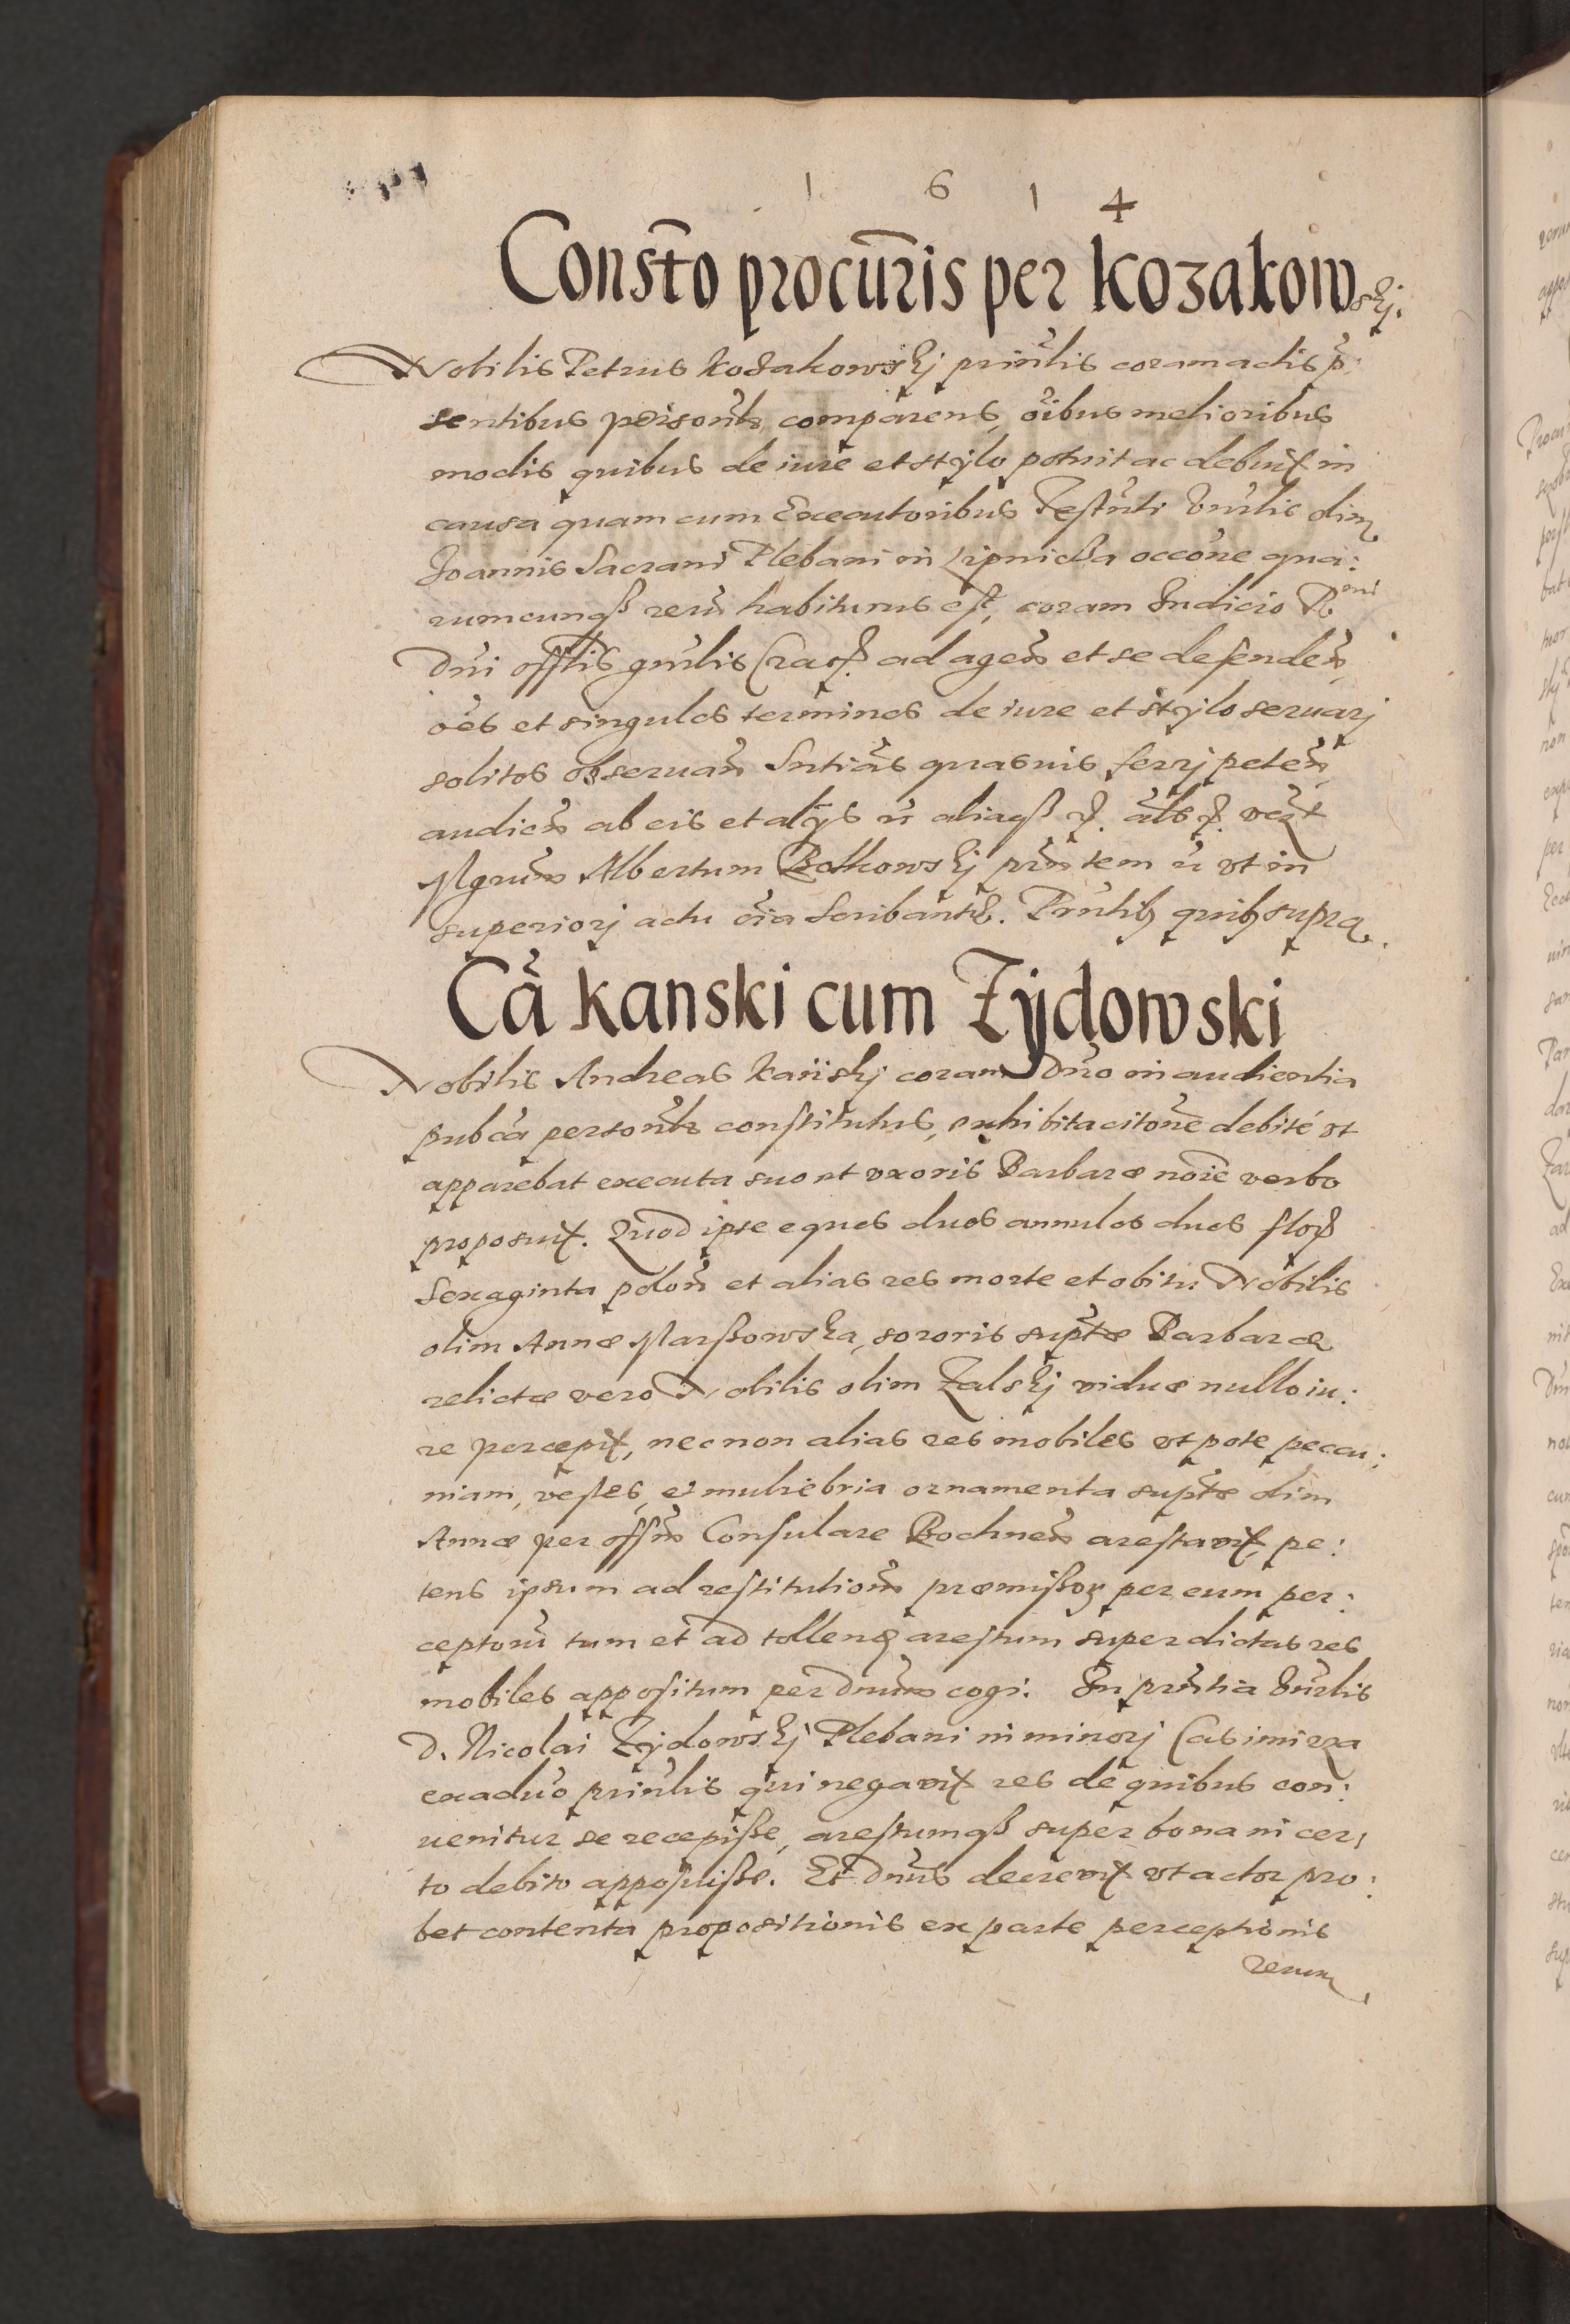 1 6 1 4
Consto procuris per Kozakowskj.
Nobilis Petrus Kozakowskj prinlis coram actis p
sentibus personlr comparens, oibus melioribus
modis quibus de iure et stylo potuit ac debuit in
causa quam cum Executoribus Testnti Vnrlis olim
Joannis Sacrani Plebani in Lipnicza occone qua:
rumcunqß reru habiturus est, coram Judicio R mi
Dni offlis gnrlis Crac ad agen et se defenden,
oes et singulos terminos de iure et stylo seruarj
solitos obseruan Sntias quasuis ferrj peten,
audien ab eis et alys ui aliaqß als
Mgrum Albertum Bolkowskj prntem ut in
superiorj actu oia scribantr. Prntib quib supra.
Ca Kanski cum Zÿdowski
Nobilis Andreas Kanskj coram Dno in audientia
pubca personlr constitutus, exhibita citone debite ut
apparebat executa suo et uxoris Barbaræ noie verbo
proposuit. Quod ipse eques duos annulos duos flor
Sexaginta polon et alias res morte et obitu Nobilis
olim Annæ Marßowska, sororis suptæ Barbaræ
relictæ vero Nobilis olim Zalskj viduæ nullo iu:
re percepit, necnon alias res mobiles ut pote pecu:
niam, vestes, et muliebria ornamenta suptæ olim
Annæ per offm Consulare Bochnen arestavit, pe:
tens ipsum ad restitution præmißor per eum per:
ceptoru tum et ad tollend arestum super dictas res
mobiles appositum per Dnum cogi. In prntia Vnrlis
D. Nicolai Zydowskj Plebani in minorj Casimirza
exaduo prinlis qui negavit res de quibus con:
uenitur se recepiße, arestumqß super bona in cer:
to debito apposuiße. Et Dnus decrevit ut actor pro:
bet contenta propositionis ex parte perceptionis
rerum